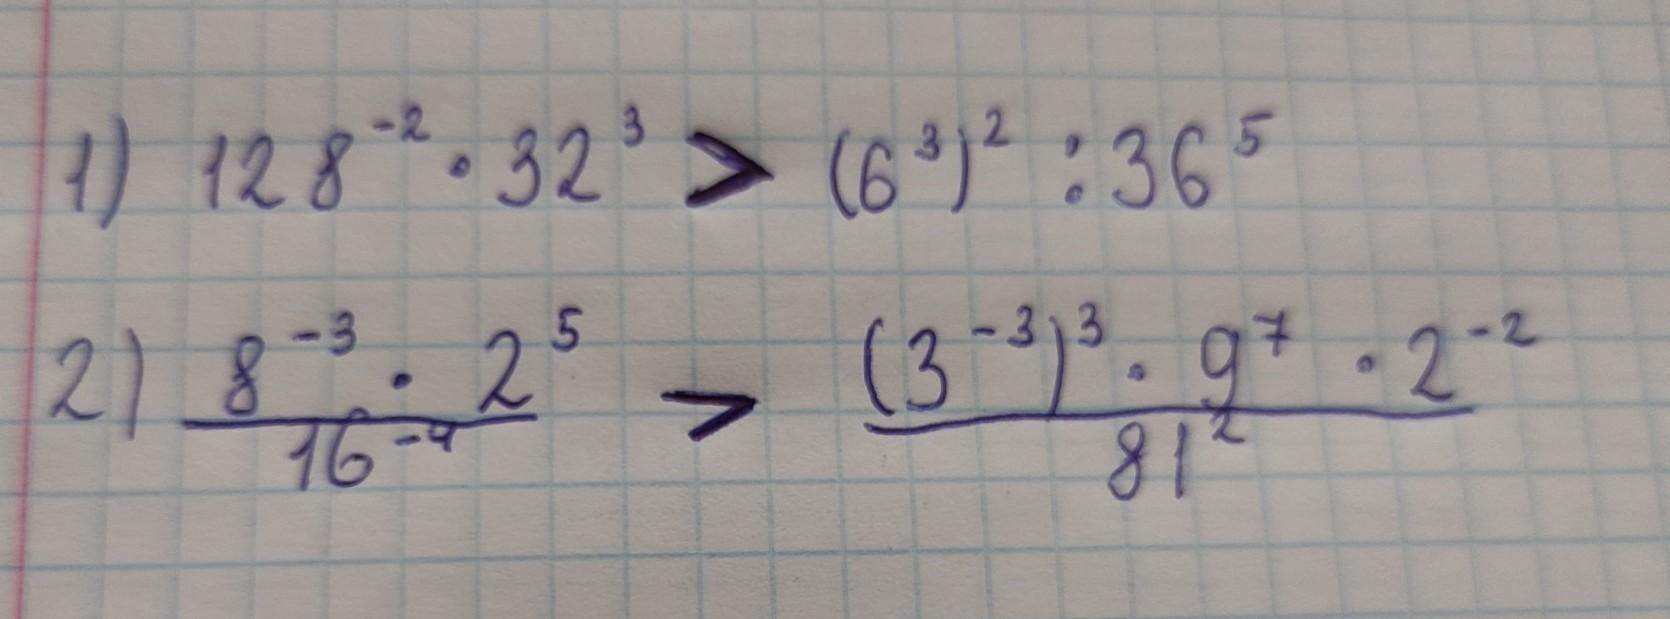 1) 128⁻² · 32³ > (6³)² : 36⁵
2) (8⁻³ · 2⁵)/(16⁻⁴) > ((3⁻³)³ · 9⁷ · 2⁻²)/(81²)